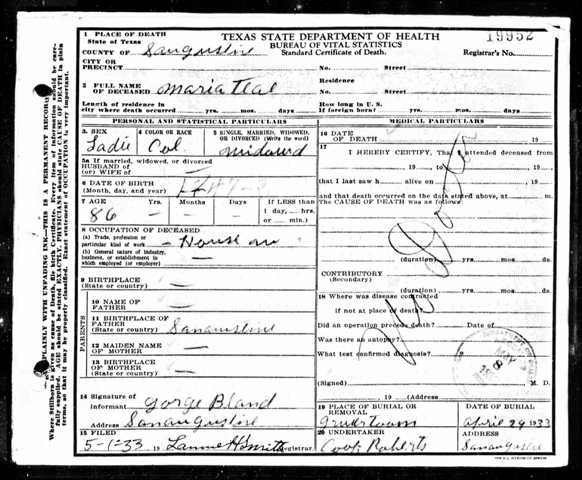 1 PLACE OF DEATH
TEXAS STATE DEPARTMENT OF HEALTH
19952
State of Texas
BUREAU OF VITAL STATISTICS
COUNTY OF Sangustine
Standard Certificate of Death.
Registrar's No.
CITY OR
PRECINCT No. Street
2 FULL NAME
OF DECEASED Maria Teal
Residence
No. Street
Length of residence in
city where death occurred yrs. mos. days
How long in U. S.
if foreign born? yrs. mos. days
PERSONAL AND STATISTICAL PARTICULARS
MEDICAL PARTICULARS
3. SEX
Ladie
4 COLOR OR RACE
Col.
5 SINGLE, MARRIED, WIDOWED,
OR DIVORCED (Write the word)
widowed
5a If married, widowed, or divorced
HUSBAND OF
(or) WIFE OF
6 DATE OF BIRTH
(Month, day, and year)
7 AGE
86
Years
Months
Days
If LESS than
1 day, hrs.
or min.)
8 OCCUPATION OF DECEASED
(a) Trade, profession or
particular kind of work House
(b) General nature of industry,
business, or establishment in
which employed (or employer)
9 BIRTHPLACE
(State or country)
PARENTS
10 NAME OF
FATHER
11 BIRTHPLACE OF
FATHER
(State or country) Sanaugustine
12 MAIDEN NAME
OF MOTHER
13 BIRTHPLACE
OF MOTHER
(State or country)
14 Signature of
Informant Gorge Bland
Address Sanaugustine
15 FILED
5-1-33 19
Registrar
16 DATE
OF DEATH 19
17
I HEREBY CERTIFY, That I attended deceased from
19 to 19
that I last saw h alive on 19
and that death occurred on the date stated above, at m.
The CAUSE OF DEATH was as follows:
No Doctor
(duration) yrs. mos. ds.
CONTRIBUTORY
(Secondary)
(duration) yrs. mos. ds.
18 Where was disease contracted
if not at place of death?
Did an operation precede death? Date of
Was there an autopsy?
What test confirmed diagnosis?
(Signed) M. D.
19 (Address)
19 PLACE OF BURIAL OR
REMOVAL
DATE OF BURIAL
April 29 1933
20 UNDERTAKER
Cook Roberts
ADDRESS
Sanaugustine